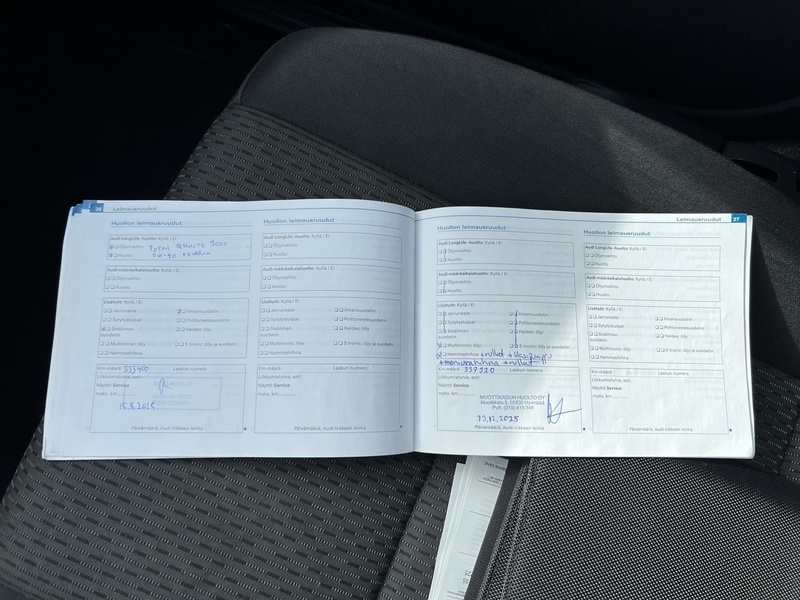 26 Leimausruudut
Huollon leimausruudut
Audi LongLife -huolto: Kyllä / Ei
Öljynvaihto
Total Quartz 9000
Huolto
0W-30 + suodatin
Audi-määräaikaishuolto: Kyllä / Ei
Öljynvaihto
Huolto
Lisätyöt: Kyllä / Ei
Jarruneste
Ilmansuodatin
Sytytystulpat
Polttoainesuodatin
Sisäilmansuodatin
Haldex: öljy
Multitronic: öljy
S tronic: öljy ja suodatin
Hammashihna
Km-määrä 333400 Laskun numero
Liikkumisturva, asti:
Näyttö Service
maks. km
15.8.2025
Päivämäärä, Audi-liikkeen leima
Huollon leimausruudut
Audi LongLife -huolto: Kyllä / Ei
Öljynvaihto
Huolto
Audi-määräaikaishuolto: Kyllä / Ei
Öljynvaihto
Huolto
Lisätyöt: Kyllä / Ei
Jarruneste
Ilmansuodatin
Sytytystulpat
Polttoainesuodatin
Sisäilmansuodatin
Haldex: öljy
Multitronic: öljy
S tronic: öljy ja suodatin
Hammashihna
Km-määrä Laskun numero
Liikkumisturva, asti:
Näyttö Service
maks. km
Päivämäärä, Audi-liikkeen leima
Leimausruudut 27
Huollon leimausruudut
Audi LongLife -huolto: Kyllä / Ei
Öljynvaihto
Huolto
Audi-määräaikaishuolto: Kyllä / Ei
Öljynvaihto
Huolto
Lisätyöt: Kyllä / Ei
Jarruneste
Ilmansuodatin
Sytytystulpat
Polttoainesuodatin
Sisäilmansuodatin
Haldex: öljy
Multitronic: öljy
S tronic: öljy ja suodatin
Hammashihna + rullat + vesipumppu
+ moniurahihna + rullat
Km-määrä 339320 Laskun numero
Liikkumisturva, asti:
Näyttö Service
maks. km
MUOTTIKADUN HUOLTO OY
Muottikatu 5, 05830 Hyvinkää
Puh. (019) 419 346
13.12.2025
Päivämäärä, Audi-liikkeen leima
Huollon leimausruudut
Audi LongLife -huolto: Kyllä / Ei
Öljynvaihto
Huolto
Audi-määräaikaishuolto: Kyllä / Ei
Öljynvaihto
Huolto
Lisätyöt: Kyllä / Ei
Jarruneste
Ilmansuodatin
Sytytystulpat
Polttoainesuodatin
Sisäilmansuodatin
Haldex: öljy
Multitronic: öljy
S tronic: öljy ja suodatin
Hammashihna
Km-määrä Laskun numero
Liikkumisturva, asti:
Näyttö Service
maks. km
Päivämäärä, Audi-liikkeen leima